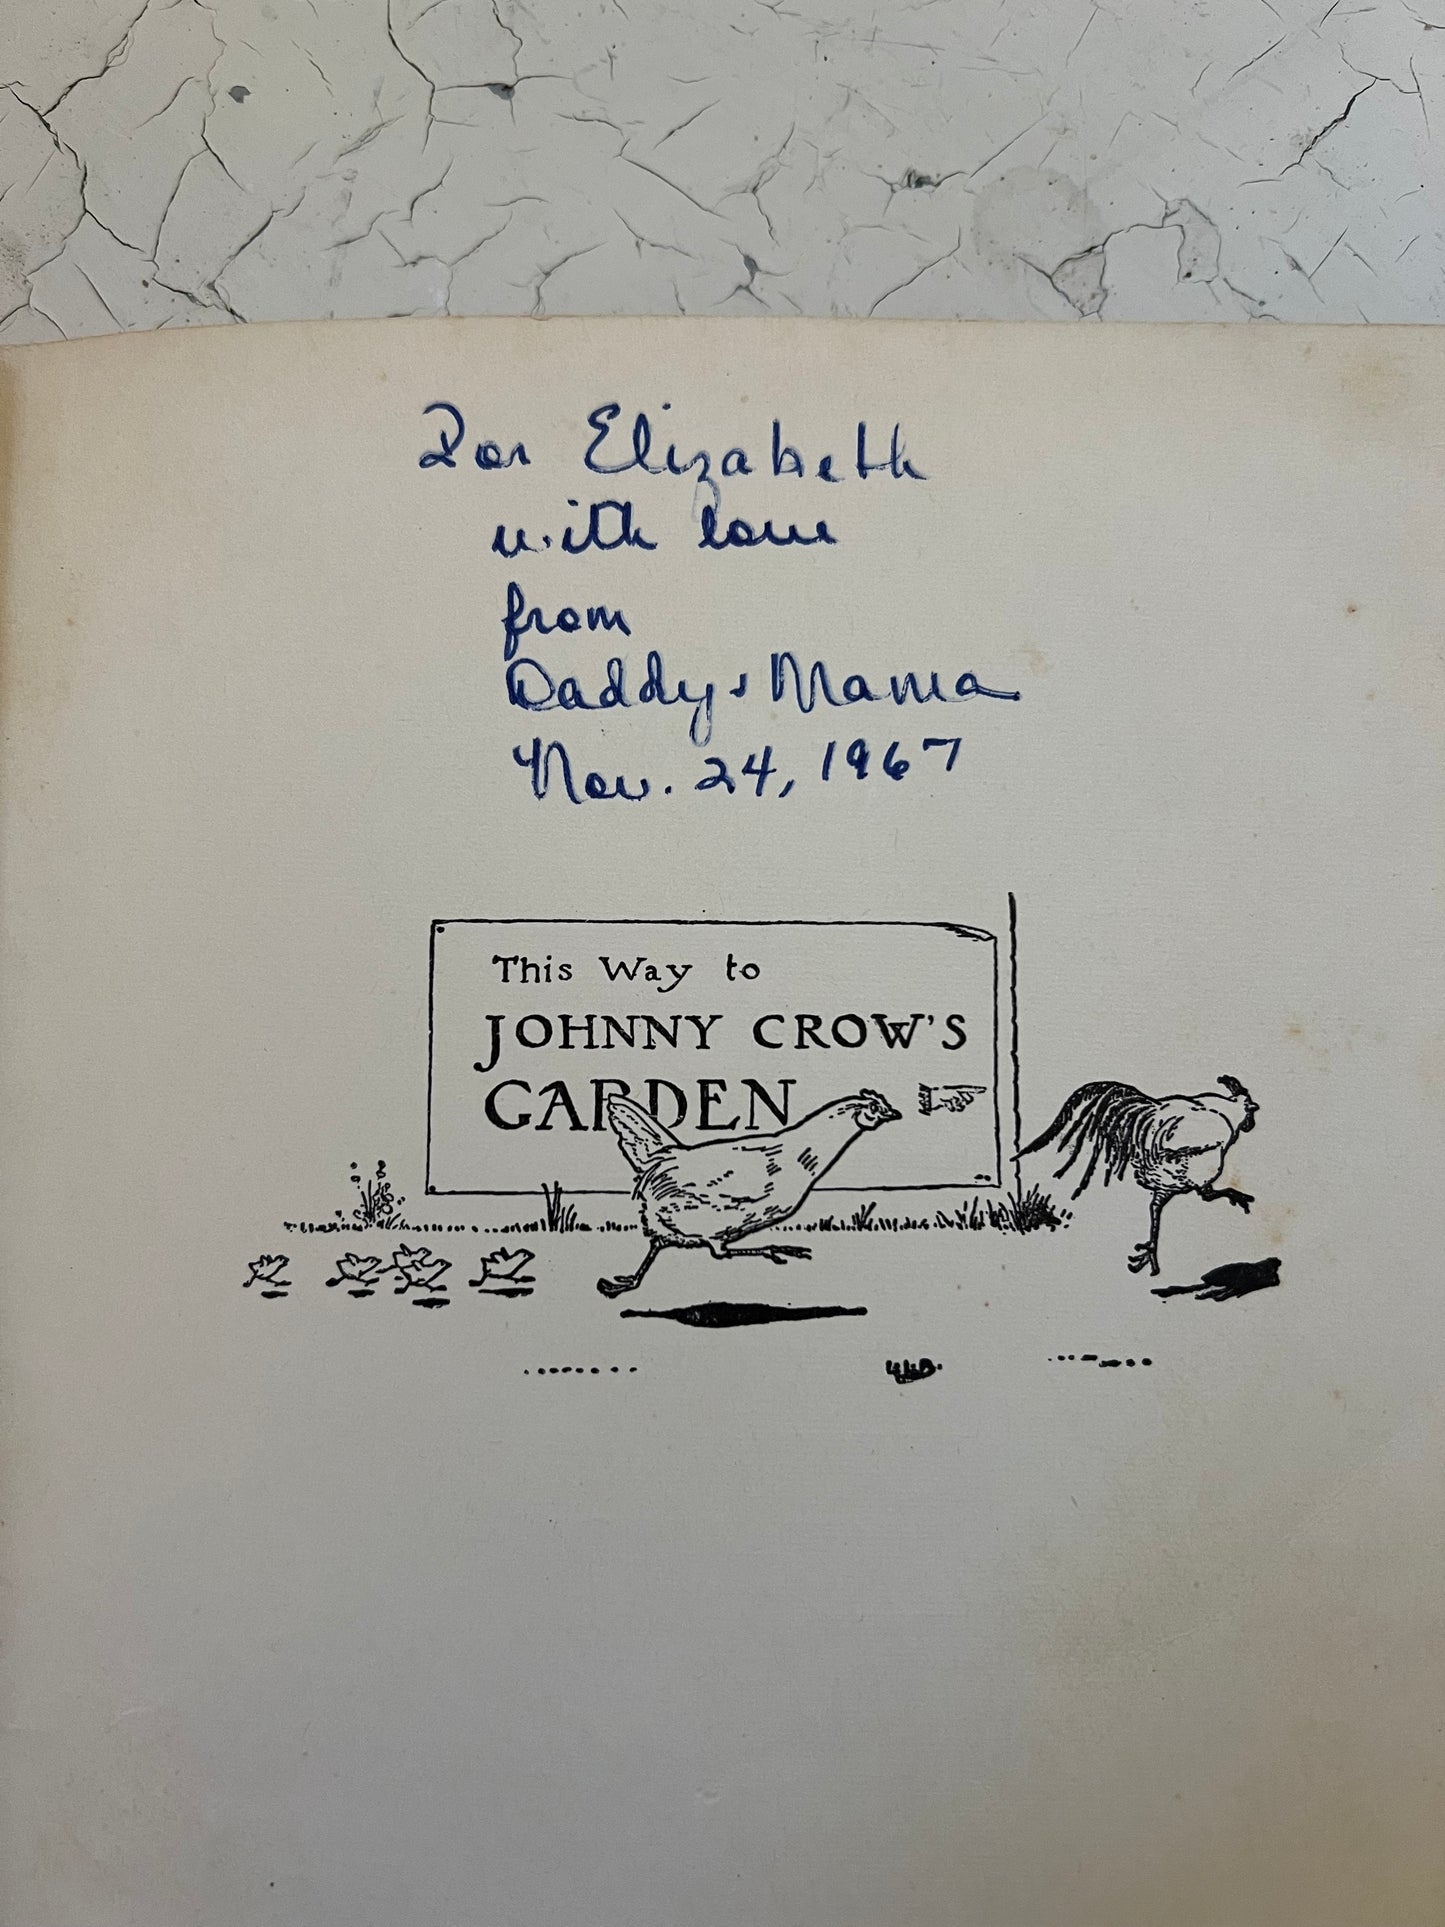 For Elizabeth
with love
from
Daddy & Mama
Nov. 24, 1967
This Way to
JOHNNY CROW'S
GARDEN